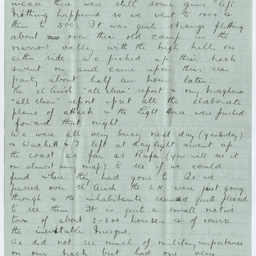 mean there were still some guns left.
Nothing happened so we went to 1000 &
then to 500. It was quite strange flying
about over their old camp in the
narrow valley with the high hills on
either side. We picked up their track
went on and came upon their rear
party about half an hour later.
The el Arish "all clear" report & my Maghara
"all clear" report upset all the elaborate
plans of attack & the Light Horse were pushed
forward that night.
We were all very busy next day (yesterday)
Wackett & I left at daylight & went up
the coast as far as Rafa (you will see it
on almost any map) to see if we could
find where they had gone to. As we
passed over el Arish the L.H. were just going
through & the inhabitants seemed quite pleased
to see them. It is quite a small native
town of about 2-300 houses & of course
the inevitable Mosque.
We did not see much of military importance
on our track but had one very